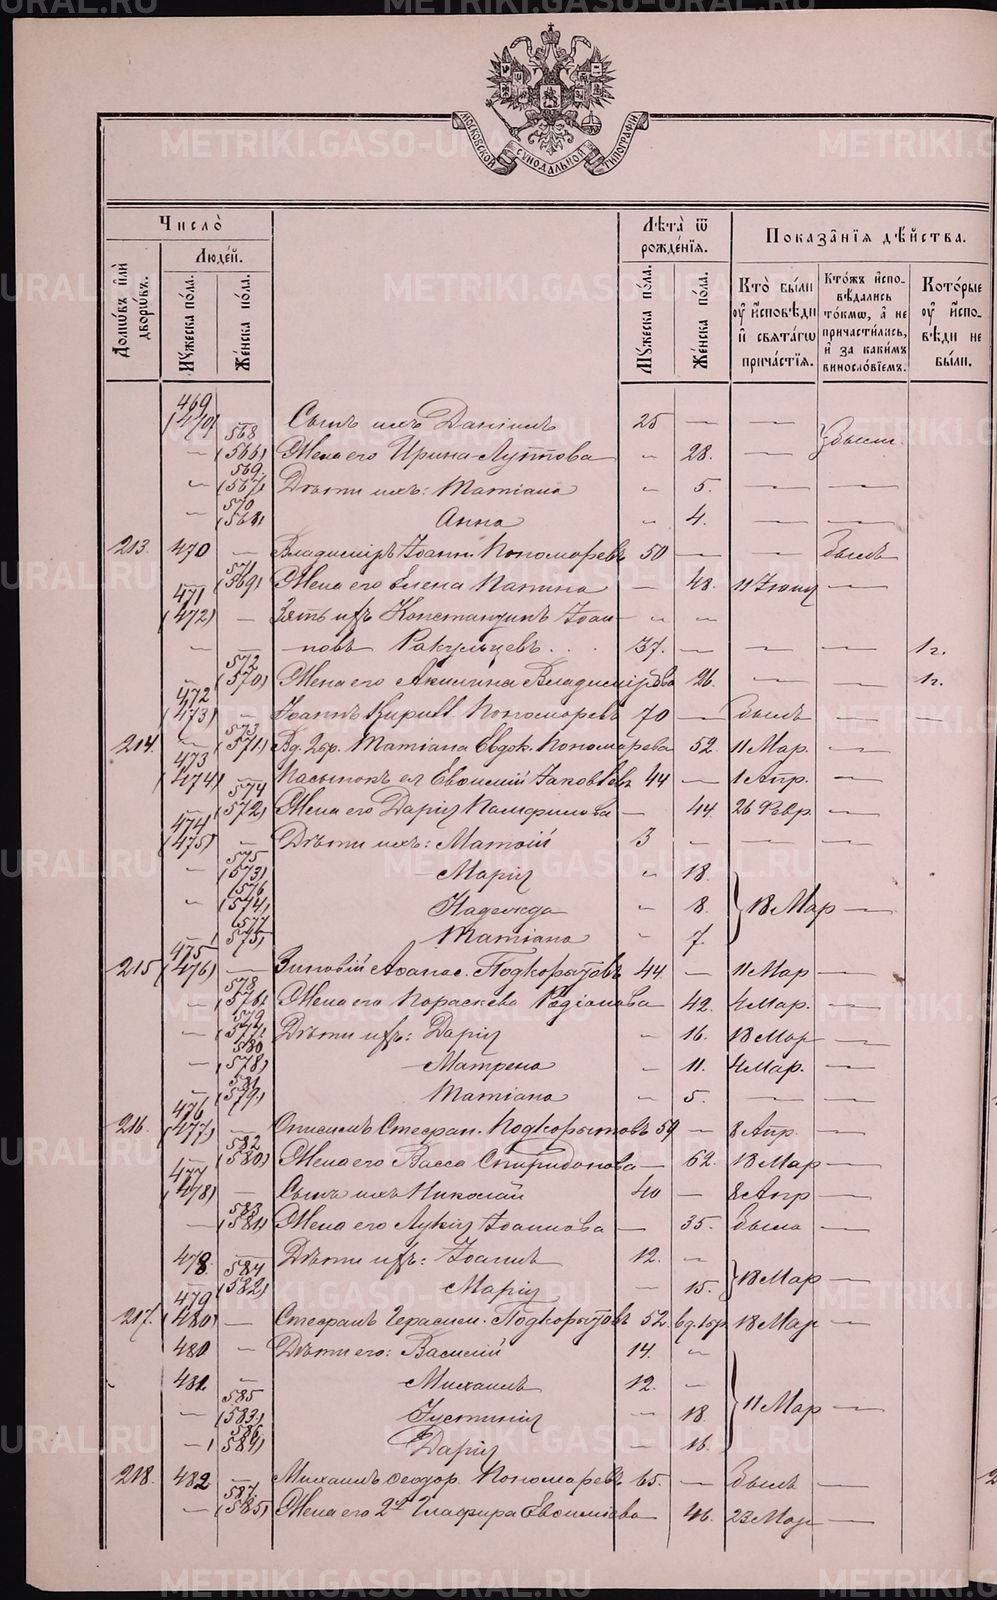 METRIKI.GASO-URAL.RU
МОСКОВСКОЙ СѴНОДАЛЬНОЙ ТИПОГРАФІИ
Число̀
Людéй.
Домѡ́въ и҆лѝ дворѡ́въ.
Мꙋ́жеска по́ла.
Же́нска по́ла.
Лѣ́та ѿ рожде́нїѧ.
Мꙋ́жеска по́ла.
Же́нска по́ла.
Показа̑нїѧ дѣ́йства.
Кто̀ бы́ли оу҆ и҆сповѣди и҆ свѧта́гѡ прича́стїѧ.
Кто́жъ и҆сповѣ́дались то́кмѡ, а҆ не причасти́лись, и҆ за каки́мъ винослѡ́вїемъ.
Кото́рые оу҆ и҆спо́вѣди не бы́ли.
469 (470) Сынъ ихъ Даніилъ 25 — — } были
— 568 (566) Жена его Ирина Луппова — 28. — —
— 569. (567) Дѣти ихъ: Татіана — 5. — —
— 570 (568) Анна — 4. — —
213. 470 — Владиміръ Іоанн. Пономоревъ 50 — — Былъ
— 571 (569) Жена его Елена — 48. 11 Іюня —
471 (472) — Зять ихъ Константинъ Іоан-
новъ Ракульцевъ. 37. — — — 1 г.
— 572 (570) Жена его Акилина Владимірова 26. — — 1 г.
472 (473) — Іоаннъ Кирилл. Пономоревъ 70 — Былъ — —
214. — 573 (571) Вд. 2 бр. Татіана Евдок. Пономарева 52. 11 Мар. —
473 (474) — Пасынокъ ея Евѳимій Іаковлевъ 44 — 1 Апр. —
— 574 (572) Жена его Дарія Памфилова — 44. 26 Февр. —
474 (475) — Дѣти ихъ: Матѳій 3 — — —
— 575 (573) Марія — 18.
— 576 (574) Надежда — 8. } 18 Мар —
— 577 (575) Татіана — 7.
215 475 (476) — Зиновій Аѳанас. Подкорытовъ 44. — 11 Мар —
— 578 (576) Жена его Параскева Родіонова 42. 4 Мар. —
— 579 (577) Дѣти ихъ: Дарія — 16. 18 Мар —
— 580 (578) Матрена — 11. 4 Мар. —
— 581 (579) Татіана — 5. — —
216. 476 (477) — Онисимъ Стефан. Подкорытовъ 59 — 8 Апр. —
— 582 (580) Жена его Васса Спиридонова — 62. 18 Мар —
477 (478) — Сынъ ихъ Николай 40 — 8 Апр —
— 583 (581) Жена его Лукія Іоаннова — 35. Была —
478. — Дѣти ихъ: Іоаннъ 12. —
— 584 (582) Марія — 15. } 18 Мар —
217. 479 (480) — Стефанъ Герасим. Подкорытовъ 52. вд. 1 бр 18 Мар —
480 — Дѣти его: Василій 14. —
481. — Михаилъ 12. —
— 585 (583) Іустинія — 18. } 11 Мар —
— 586 (584) Дарія — 16.
218. 482 — Михаилъ Ѳеодор. Пономаревъ 65. — Былъ —
— 587. (585) Жена его 2я Глафира Евѳимова — 46. 23 Мар —